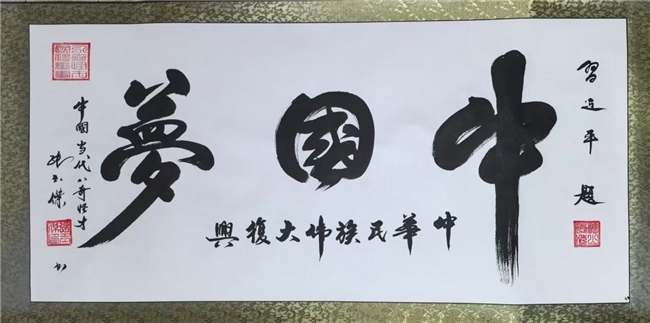 習近平 題
中國夢
中華民族伟大復興
中國当代八奇怪才
書